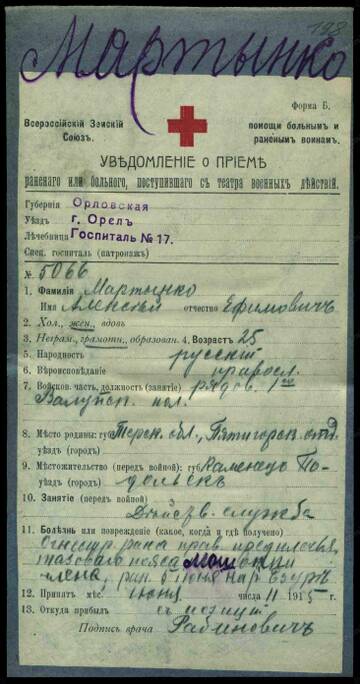 198
Мартынко
Форма Б.
Всероссійскій Земскій Союзъ.
помощи больнымъ и раненымъ воинамъ.
УВѢДОМЛЕНІЕ О ПРІЕМѢ
раненаго или больного, поступившаго съ театра военныхъ дѣйствій.
Губернія Орловская
Уѣздъ г. Орелъ
Лѣчебница Госпиталь № 17.
Спец. госпиталь (патронажъ)
№ 5066
1. Фамилія Мартынко
Имя Алексѣй отчество Ефимовичъ
2. Хол., жен., вдовъ
3. Неграм., грамотн., образован. 4. Возрастъ 25
5. Народность русскій
6. Вѣроисповѣданіе правосл.
7. Войсков. часть, должность (занятіе) рядов. 1го
Валуйск. пол.
8. Мѣсто родины: губ. Терск. обл., Пятигорск. отд.
уѣздъ (городъ)
9. Мѣстожительство (передъ войной): губ. Каменецъ По-
уѣздъ (городъ) дольскъ
10. Занятіе (передъ войной)
Дѣйств. служба
11. Болѣзнь или поврежденіе (какое, когда и гдѣ получено)
Огнестр. рана прав. предплечья,
тазоваго пояса
члена, ран. 6 іюня на р.
12. Принятъ мѣс. іюня числа 11 1915 г.
13. Откуда прибылъ съ позицій
Подпись врача Рабиновичъ